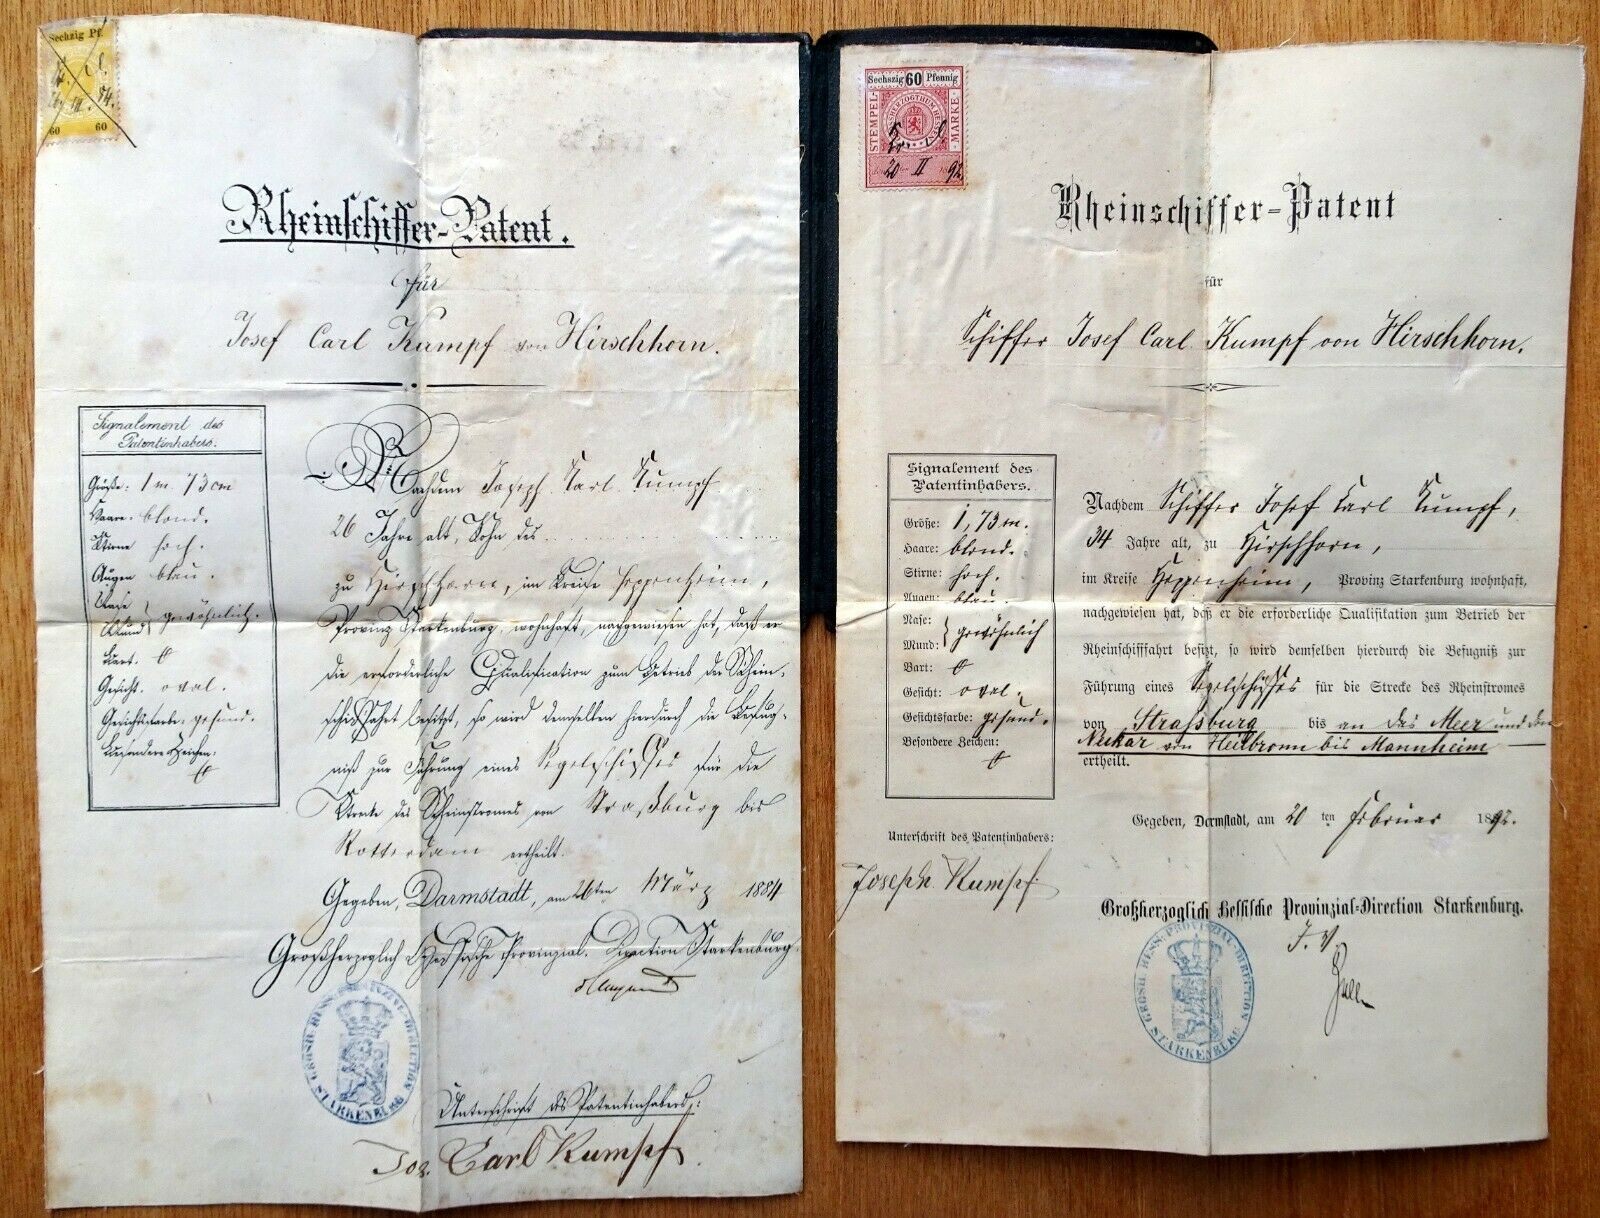 Sechzig Pf.
84.
60 60
Rheinschiffer-Patent.
für
Josef Carl Kumpf von Hirschhorn.
Signalement des
Patentinhabers.
Größe: 1 m 73 cm
Haare: blond.
Stirne hoch.
Augen blau.
Nase
Mund } gewöhnlich.
Bart.
Gesicht. oval.
Gesichtsfarbe: gesund.
Besondere Zeichen:
Nachdem Joseph Karl Kumpf
26 Jahre alt, Sohn des
zu Hirschhorn, im Kreise Heppenheim,
Provinz Starkenburg, wohnhaft, nachgewiesen hat, daß er
die erforderliche Qualification zum Betrieb der Rhein-
schiffahrt besitzt, so wird demselben hierdurch die Befug-
niß zur Führung eines Segelschiffes für die
Strecke des Rheinstromes von Straßburg bis
Rotterdam ertheilt.
Gegeben, Darmstadt, am 26ten März 1884
Großherzoglich Hessische Provinzial-Direction Starkenburg.
GROSH. HESS. PROVINZIAL-DIRECTION
STARKENBURG
Unterschrift des Patentinhabers:
Jos. Carl Kumpf
Sechszig 60 Pfennig
STEMPEL-MARKE
GROSSHERZOGTHUM HESSEN
20 II 92.
Rheinschiffer-Patent
für
Schiffer Josef Carl Kumpf von Hirschhorn.
Signalement des
Patentinhabers.
Größe: 1,73 m.
Haare: blond.
Stirne: hoch.
Augen: blau.
Nase:
Mund: } gewöhnlich
Bart:
Gesicht: oval.
Gesichtsfarbe: gesund.
Besondere Zeichen:
Unterschrift des Patentinhabers:
Joseph Kumpf.
Nachdem Schiffer Josef Karl Kumpf,
34 Jahre alt, zu Hirschhorn,
im Kreise Heppenheim, Provinz Starkenburg wohnhaft,
nachgewiesen hat, daß er die erforderliche Qualifikation zum Betrieb der
Rheinschifffahrt besitzt, so wird demselben hierdurch die Befugniß zur
Führung eines Segelschiffes für die Strecke des Rheinstromes
von Strassburg bis an das Meer und den
Neckar von Heilbronn bis Mannheim
ertheilt.
Gegeben, Darmstadt, am 20 ten Februar 1892.
Großherzoglich Hessische Provinzial-Direction Starkenburg.
J. V.
GROSH. HESS. PROVINZIAL-DIRECTION
STARKENBURG